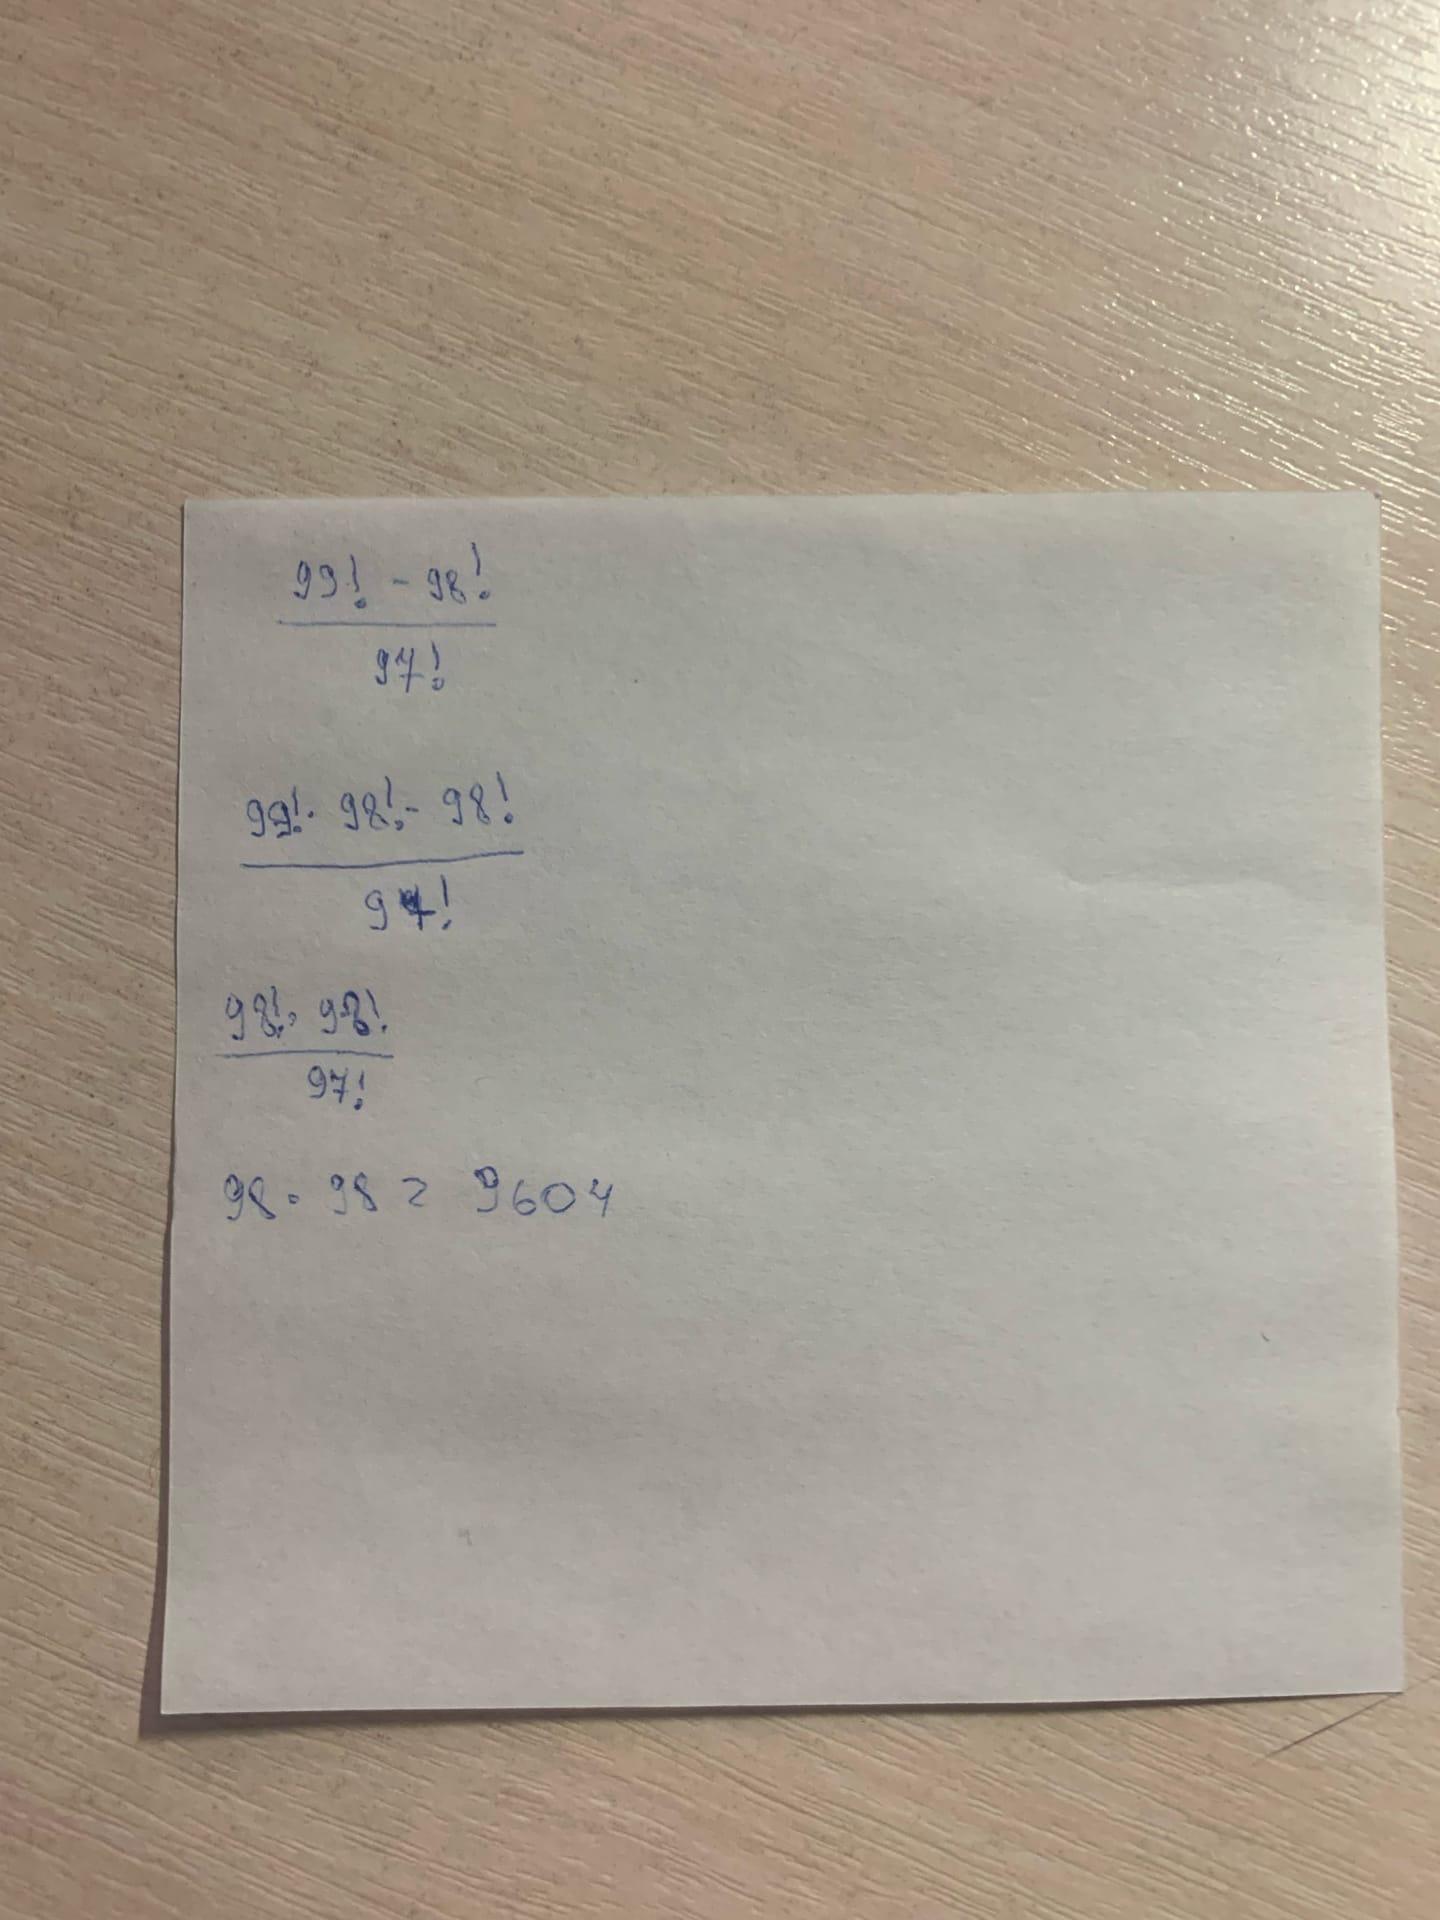 99! - 98!
97!
99!. 98!. - 98!
97!
98!. 98!
97!
98 . 98 = 9604